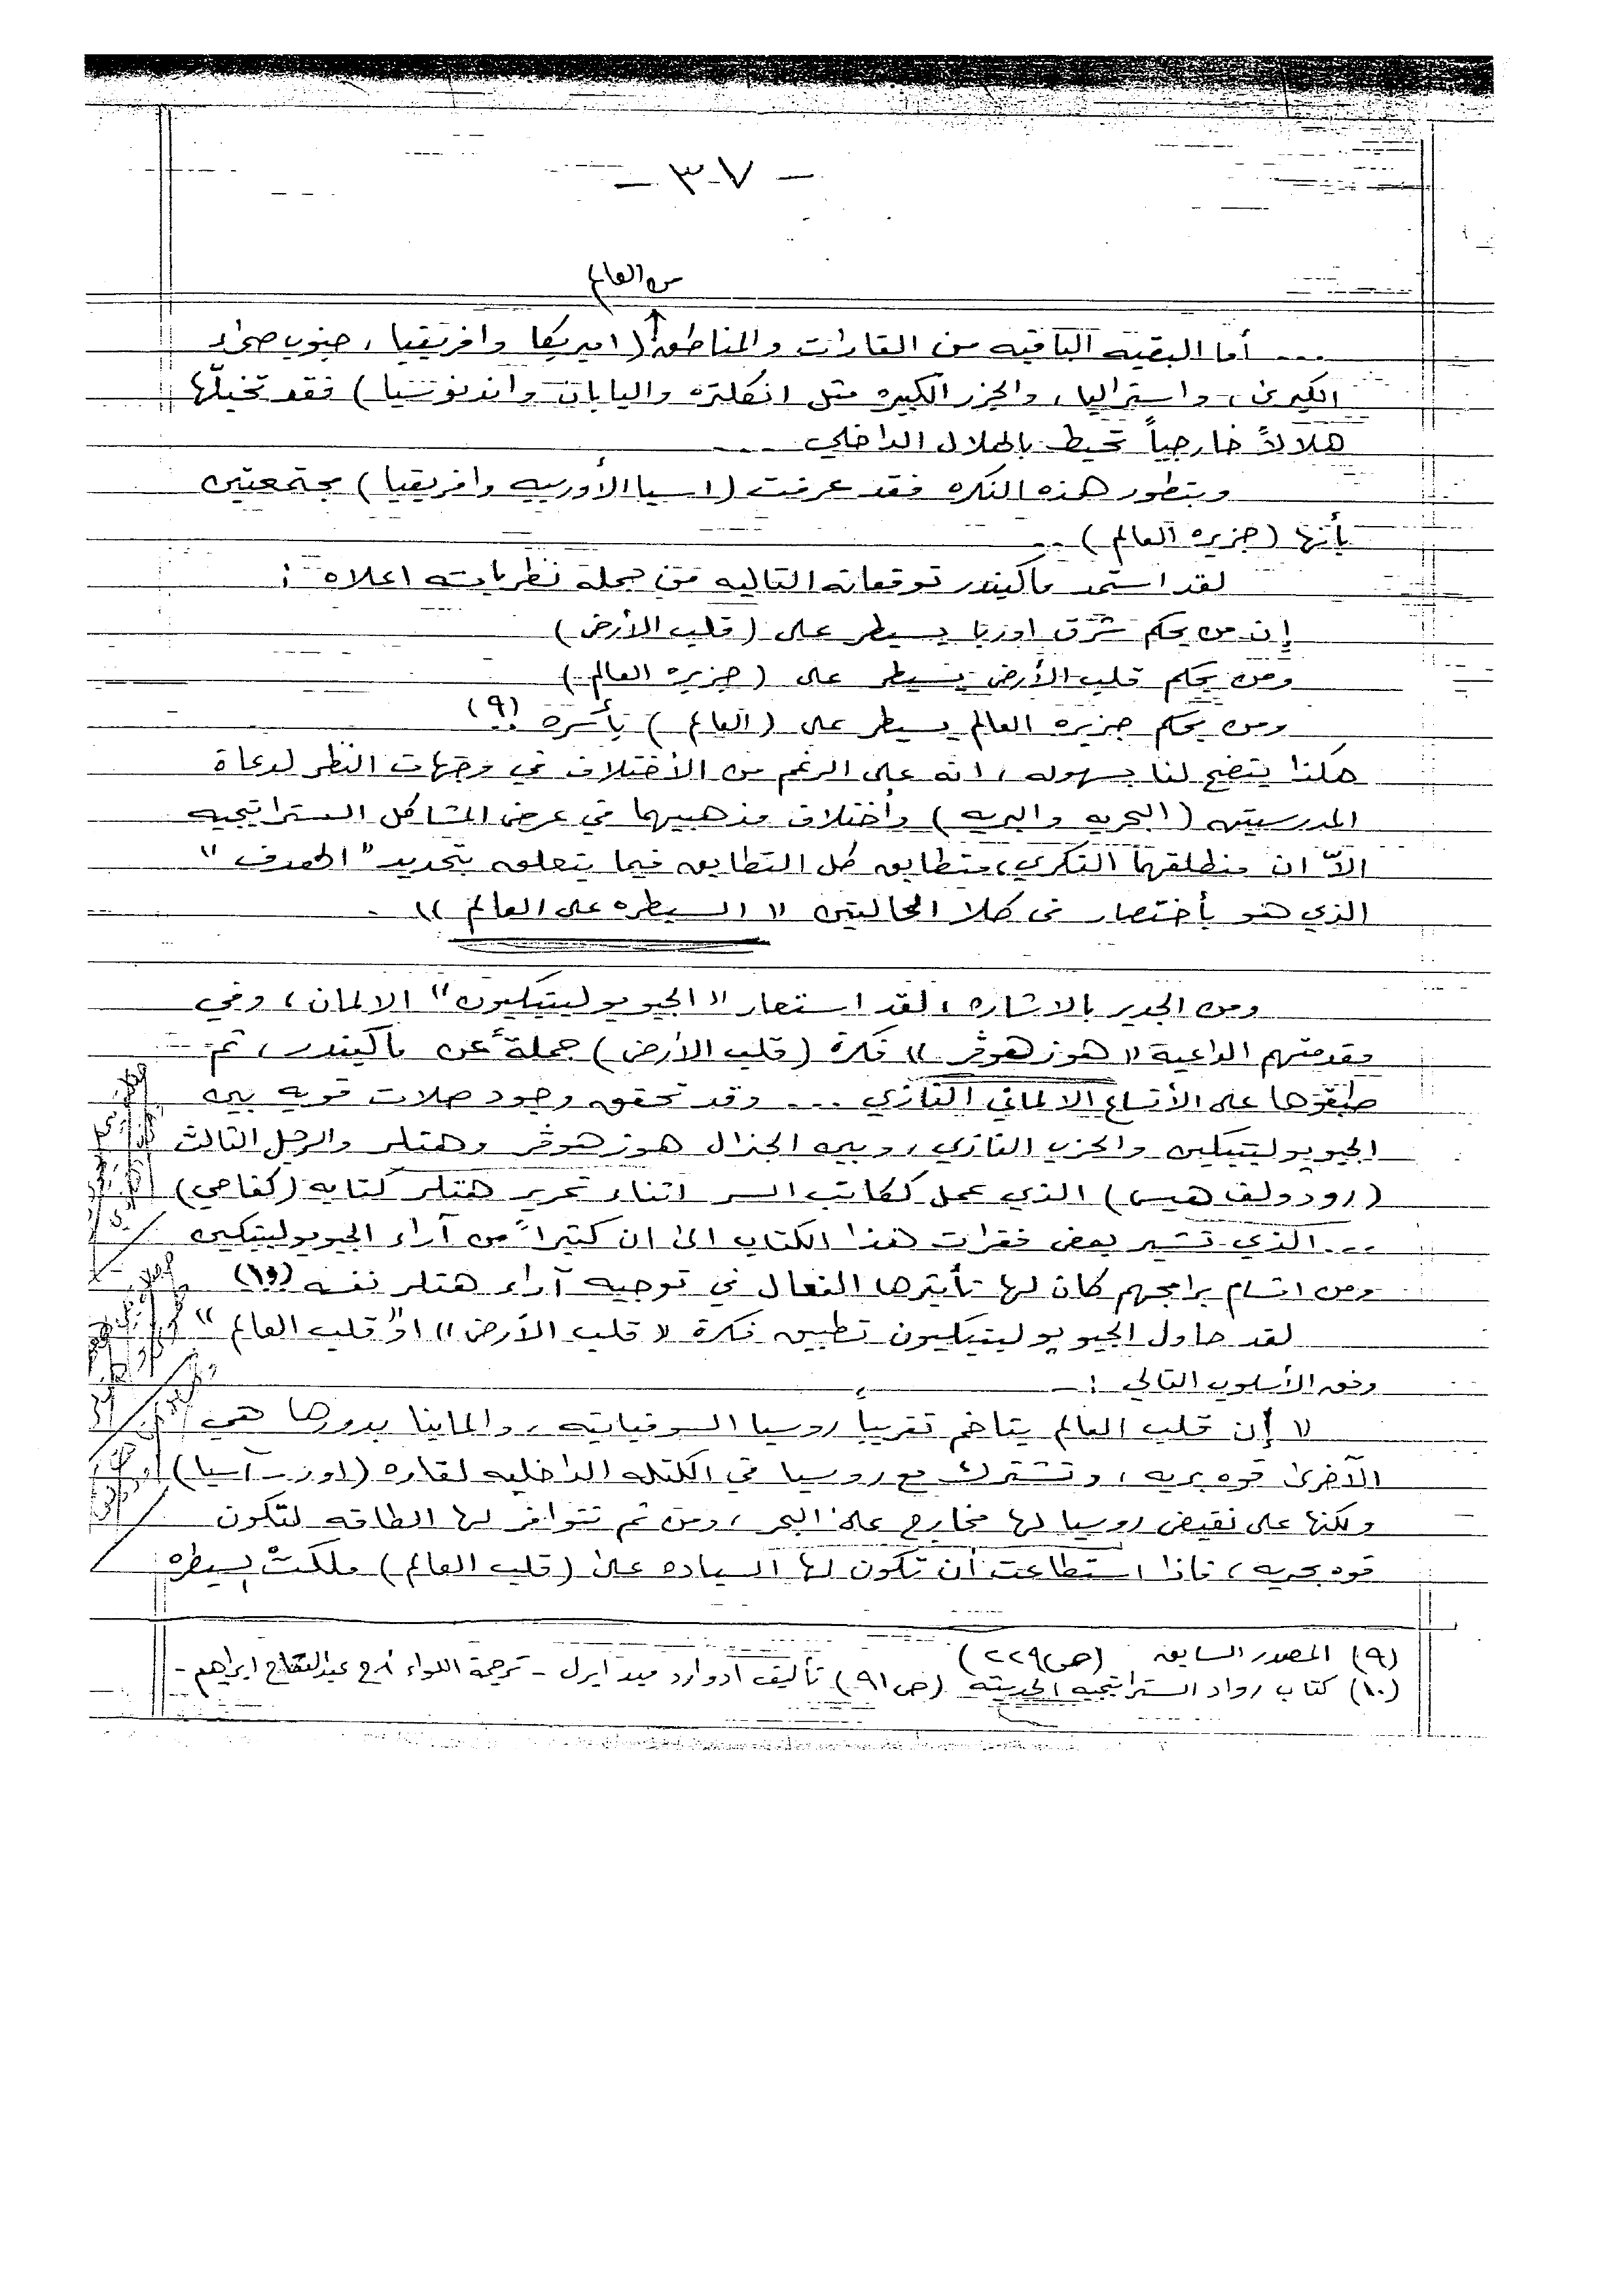 - ٣٧ -
من العالم
... أما البقيه الباقيه من القارات والمناطق (امريكا وافريقيا، جنوب صحراء
الكبرى، واستراليا، والجزر الكبيره مثل انكلتره واليابان واندنوسيا) فقد تخيلّها
هلالاً خارجياً تحيط بالهلال الداخلي ...
وبتطور هذه الفكره فقد عرفت (اسيا الأوربيه وافريقيا) مجتمعتين
بأنها (جزيره العالم) ..
لقد استمد ماكيندر توقعاته التاليه من جملة نظرياته اعلاه :
إن من يحكم شرق اوربا يسيطر على (قلب الأرض)
ومن يحكم قلب الأرض يسيطر على (جزيره العالم)
ومن يحكم جزيره العالم يسيطر على (العالم) بأسره .. (٩)
هكذا يتضح لنا بسهوله، انه على الرغم من الأختلاف في وجهات النظر لدعاة
المدرستين (البحريه والبريه) وأختلاف مذهبيهما في عرض المشاكل الستراتيجيه
الاّ ان منطلقهما الفكري، متطابق كل التطابق فيما يتعلق بتحديد "الهدف"
الذي هو بأختصار في كلا الحالتين "السيطره على العالم" .
ومن الجدير بالاشاره، لقد استعار "الجيوبوليتيكيون" الالمان، وفي
مقدمتهم الداعية "هوز هوفر" فكرة (قلب الأرض) جملةً عن ماكيندر، ثم
طبقوها على الأتساع الالماني النازي ... وقد تحقق وجود صلات قويه بين
الجيوبوليتيكين والحزب النازي، وبين الجنرال هوز هوفر وهتلر والرجل الثالث
(رودولف هيس) الذي عمل ككاتب السر اثناء تحرير هتلر كتابه (كفاحي)
... الذي تشير بعض فقرات هذا الكتاب الى ان كثيراً من آراء الجيوبوليتيكين
ومن اقسام برامجهم كان لها تأثيرها الفعال في توجيه آراء هتلر نفسه (١٠)
لقد حاول الجيوبوليتيكيون تطبيق فكرة "قلب الأرض" او "قلب العالم"
وفق الأسلوب التالي :-
" إن قلب العالم يتاخم تقريباً روسيا السوفياتيه، والمانيا بدورها هي
الآخرى قوه بريه، وتشترك مع روسيا في الكتله الداخليه لقاره (اور - آسيا)
ولكنها على نقيض روسيا لها مخارج على البحر، ومن ثم تتوافر لها الطاقه لتكون
قوه بحريه، فاذا استطاعت أن تكون لها السياده على (قلب العالم) ملكت السيطره
(٩) المصدر السابق (ص ٢٢٩)
(١٠) كتاب رواد الستراتيجيه الحديثه (ص ٩١) تأليف ادوارد ميد ايرل - ترجمة اللواء فرج عبد الفتاح ابراهيم -